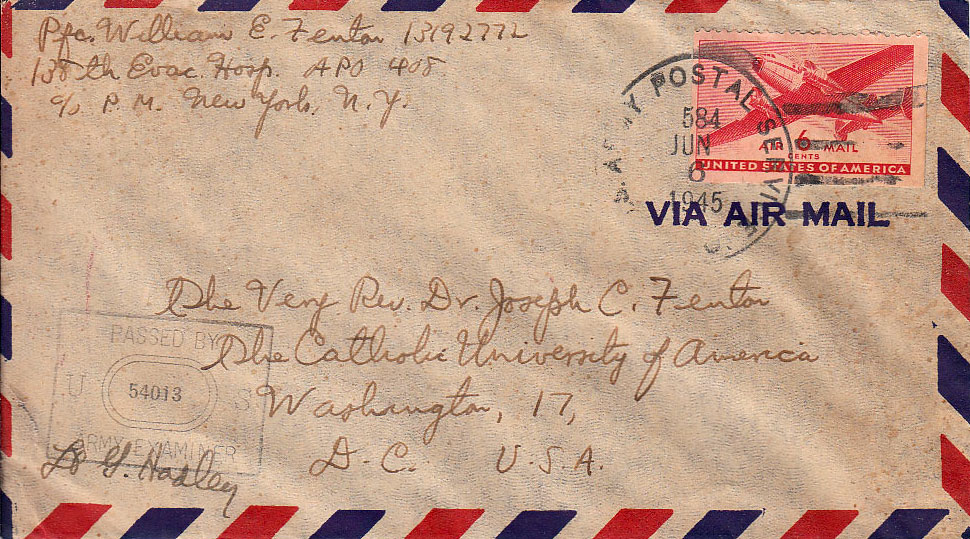 Pfc. William E. Fenton 13192772
138th Evac. Hosp. APO 408
c/o P.M. New York, N.Y.
U.S. ARMY POSTAL SERVICE
584
JUN
6
1945
AIR 6 MAIL
CENTS
UNITED STATES OF AMERICA
VIA AIR MAIL
The Very Rev. Dr. Joseph C. Fenton
The Catholic University of America
Washington, 17,
D.C. U.S.A.
PASSED BY
U 54013 S
ARMY EXAMINER
Hadley